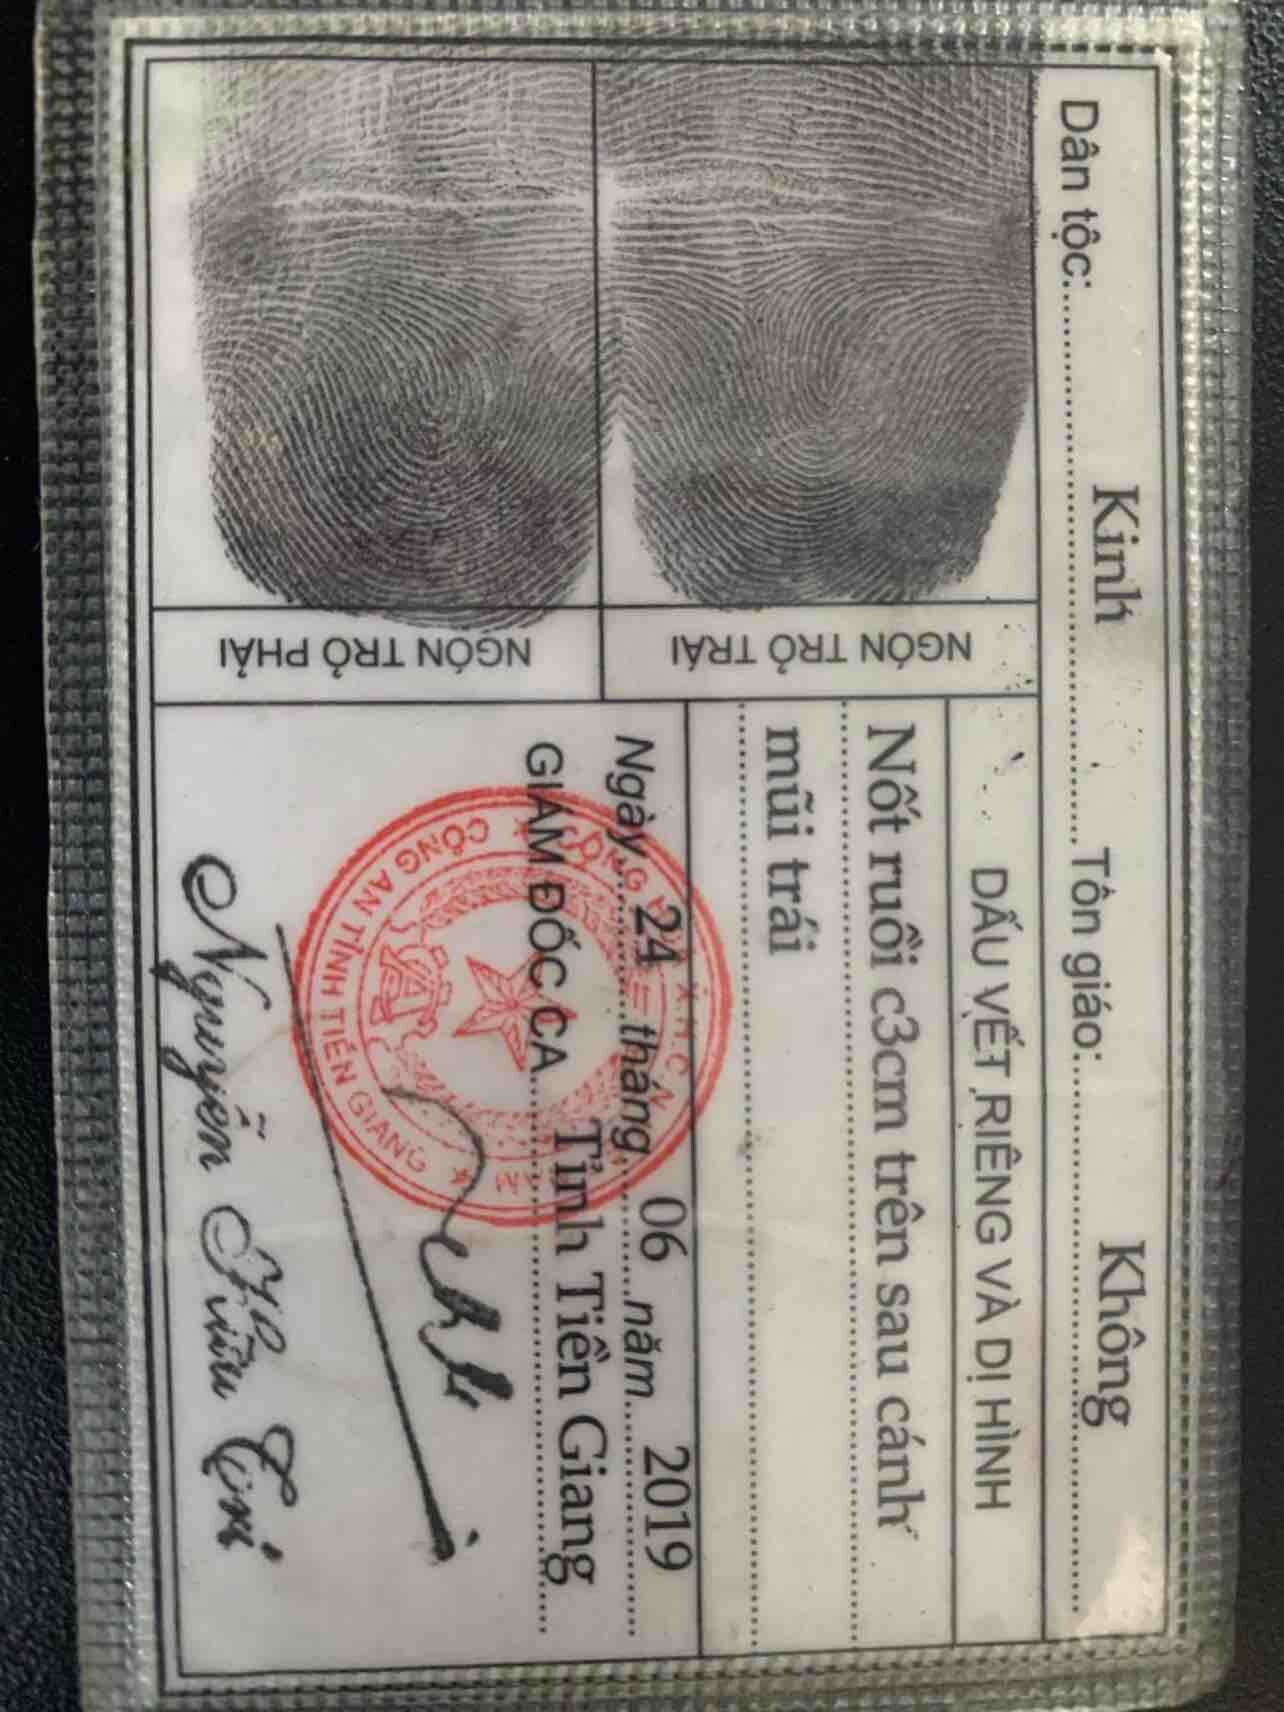 Dân tộc: Kinh Tôn giáo: Không
NGÓN TRỎ TRÁI
NGÓN TRỎ PHẢI
DẤU VẾT RIÊNG VÀ DỊ HÌNH
Nốt ruồi c3cm trên sau cánh
mũi trái
Ngày 24 tháng 06 năm 2019
GIÁM ĐỐC CA Tỉnh Tiền Giang
CÔNG AN TỈNH TIỀN GIANG
Nguyễn Hữu Trí